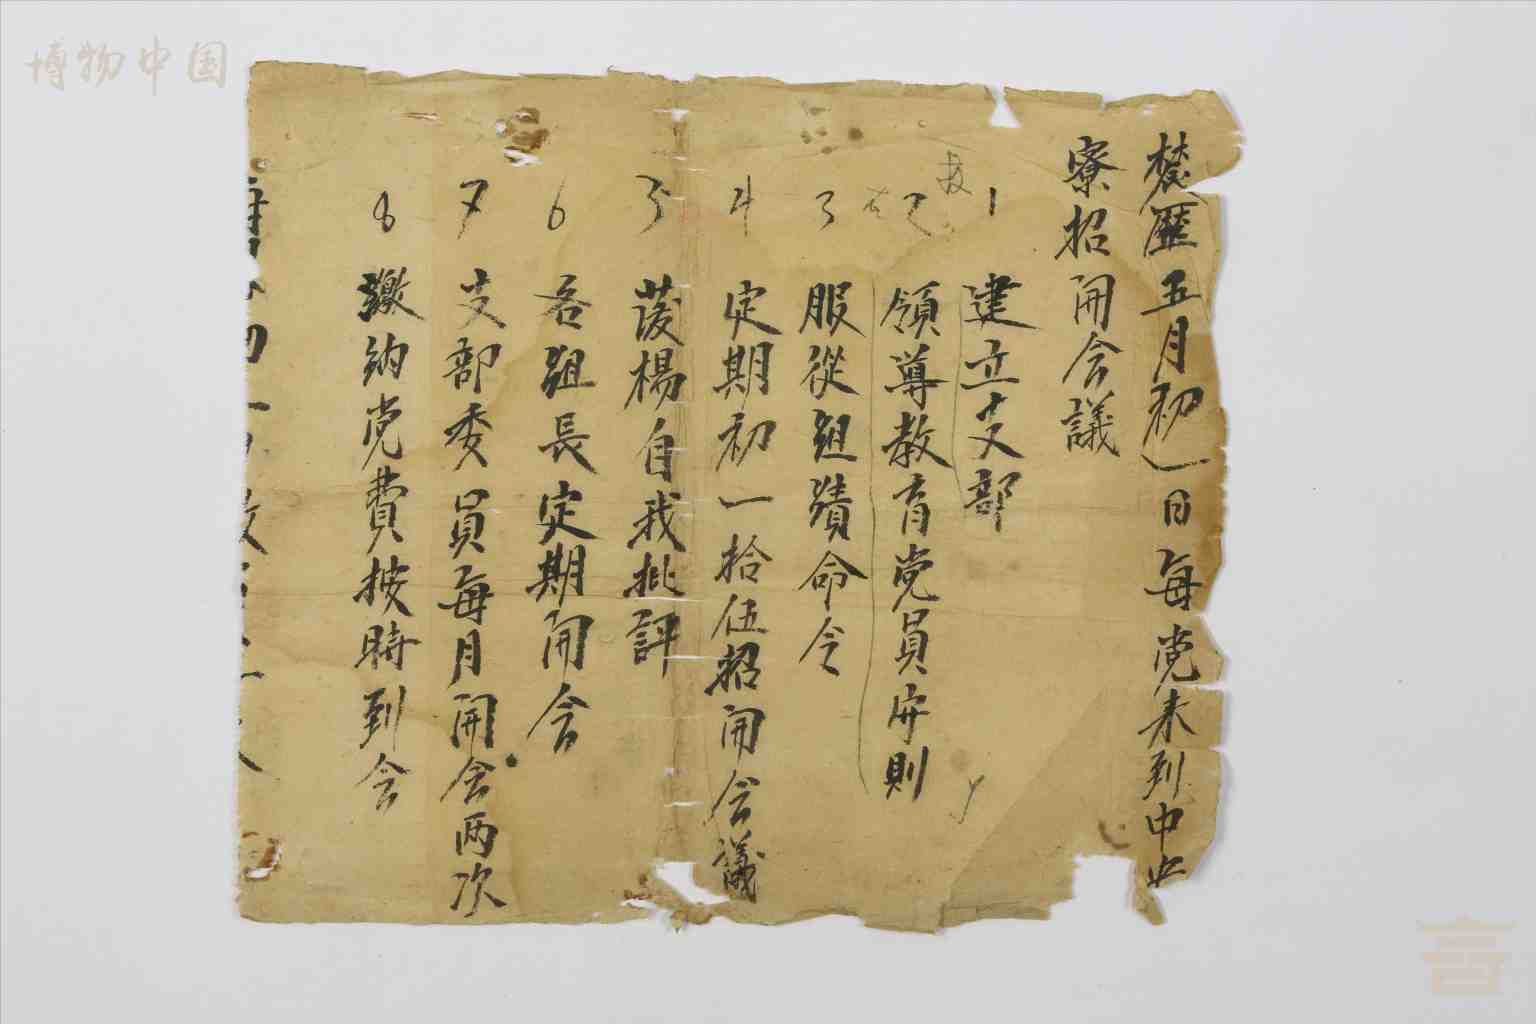 農歷五月初一日每党未到中央
寮招開会議
1 建立支部
2 領導教育党員守則
3 服從組織命令
4 定期初一拾伍招開会議
5 發楊自我批評
6 各組長定期開会
7 支部委員每月開会两次
8 繳納党費按時到会
博物中国